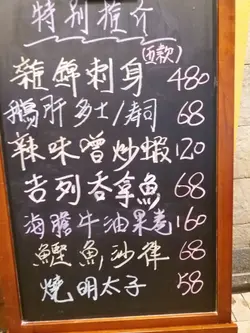 特别推介
雜錦刺身(五款) 480
鵝肝多士/壽司 68
辣味噌炒蝦 120
吉列吞拿魚 68
海膽牛油果卷 160
鰹魚沙律 68
燒明太子 58